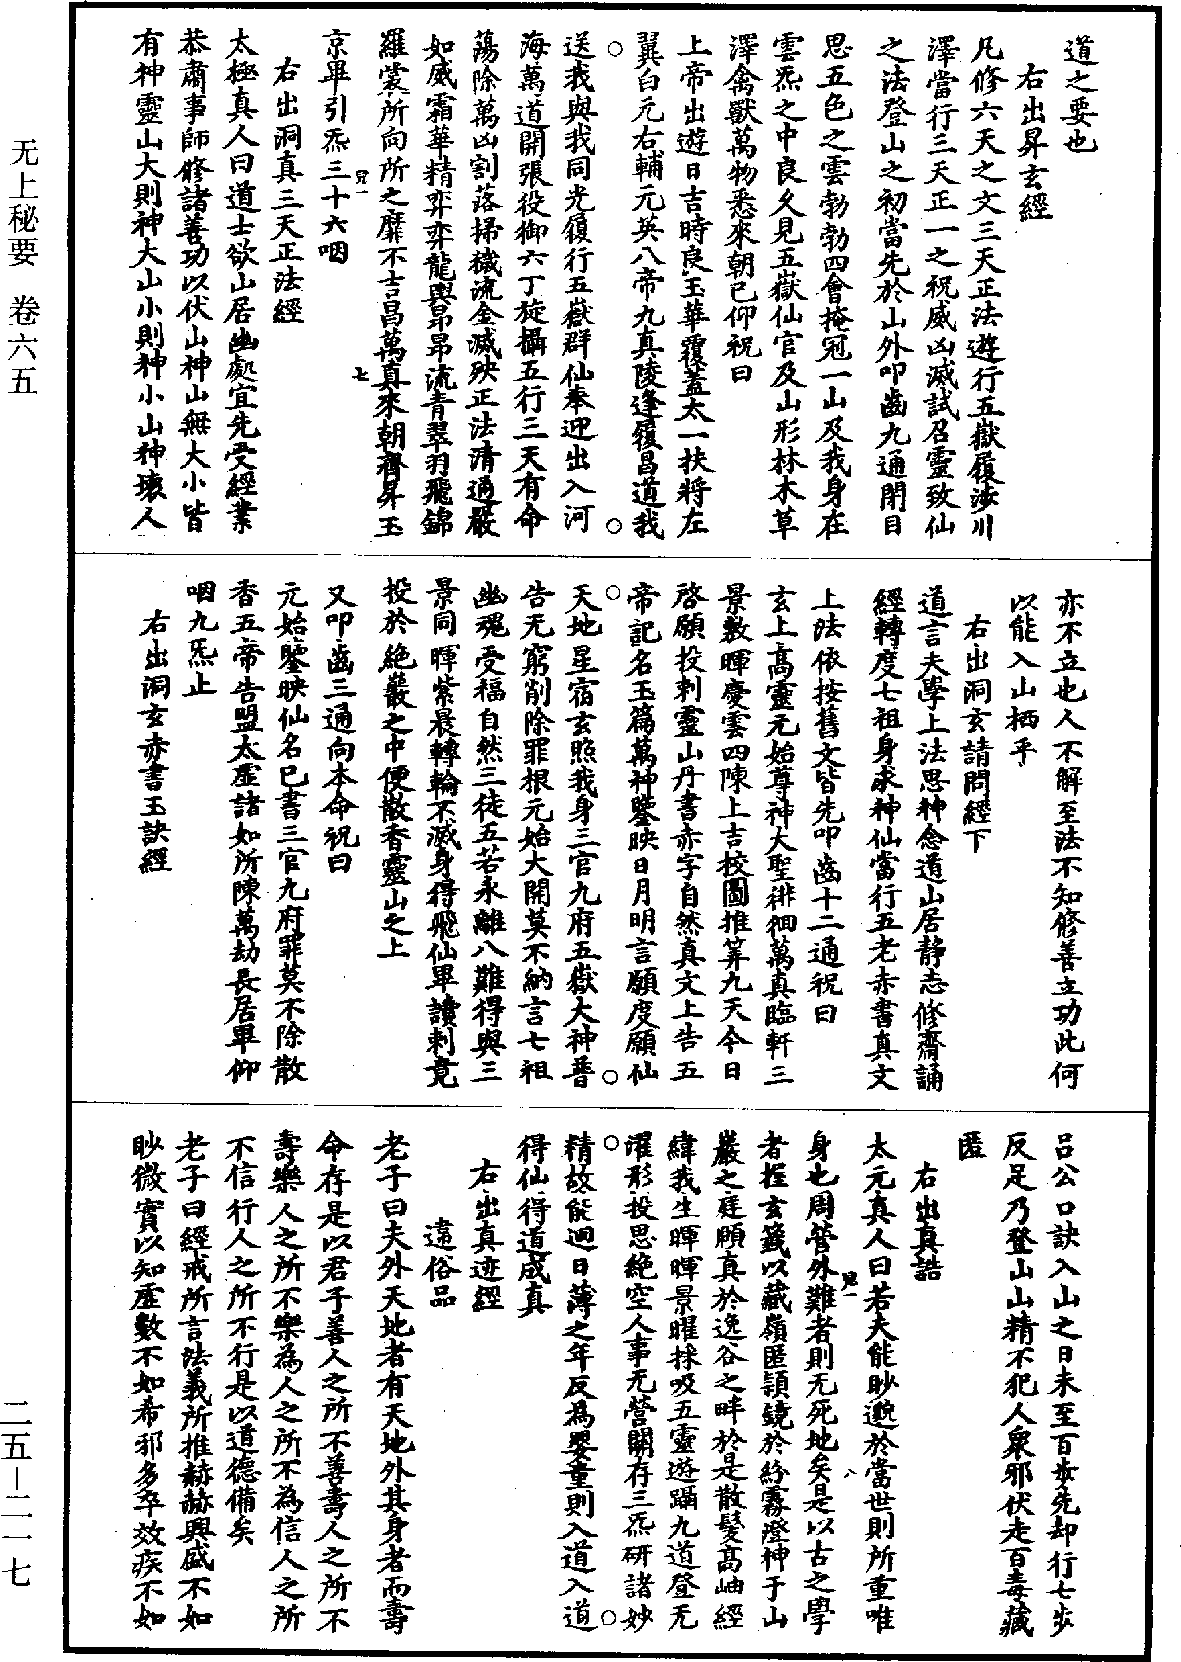 道之要也
右出昇玄經
凡修六天之文三天正法遊行五嶽履涉川
澤當行三天正一之祝威凶滅試召靈致仙
之法登山之初當先於山外叩齒九通閉目
思五色之雲勃勃四會掩冠一山及我身在
雲炁之中良久見五嶽仙官及山形林木草
澤禽獸萬物悉來朝已仰祝曰
上帝出遊日吉時良玉華覆蓋太一扶將左
翼白元右輔元英八帝九真陵逢履昌道我
送我與我同光履行五嶽群仙奉迎出入河
海萬道開張役御六丁旋攝五行三天有命
蕩除萬凶割落掃穢流金滅殃正法清通嚴
如威霜華精弈弈龍輿昂昂流青翠羽飛錦
羅裳所向所之靡不吉昌萬真來朝齊昇玉
京畢引炁三十六咽
右出洞真三天正法經
太極真人曰道士欲山居幽處宜先受經業
恭肅事師修諸善功以伏山神山無大小皆
有神靈山大則神大山小則神小山神壞人
亦不立也人不解至法不知修善立功此何
以能入山栖乎
右出洞玄請問經下
道言夫學上法思神念道山居靜志修齋誦
經轉度七祖身求神仙當行五老赤書真文
上法依按舊文皆先叩齒十二通祝曰
玄上高靈元始尊神大聖徘徊萬真臨軒三
景敷暉慶雲四陳上吉校圖推筭九天今日
啓願投刺靈山丹書赤字自然真文上告五
帝記名玉篇萬神鑒映日月明言願度願仙
天地星宿玄照我身三官九府五嶽大神普
告无窮削除罪根元始大開莫不納言七祖
幽魂受福自然三徒五苦永離八難得與三
景同暉紫晨轉輪不滅身得飛仙畢讀刺竟
投於絶巖之中便散香靈山之上
又叩齒三通向本命祝曰
元始鑒映仙名已書三官九府罪莫不除散
香五帝告盟太虛諸如所陳萬劫長居畢仰
咽九炁止
右出洞玄赤書玉訣經
呂公口訣入山之日未至百步先却行七步
反足乃登山山精不犯人衆邪伏走百毒藏
匿
右出真誥
太元真人曰若夫能眇邈於當世則所重唯
身也周營外難者則无死地矣是以古之學
者握玄籤以藏嶺匿頴鏡於紛霧澄神于山
巖之庭頤真於逸谷之畔於是散髮高岫經
緯我生暉暉景曜採吸五靈遊躡九道登无
濯形投思絶空人事无營關存三炁研諸妙
精故能迴日薄之年反為嬰童則入道入道
得仙得道成真
右出真迹經
違俗品
老子曰夫外天地者有天地外其身者而壽
命存是以君子善人之所不善壽人之所不
壽樂人之所不樂為人之所不為信人之所
不信行人之所不行是以道德備矣
老子曰經戒所言法義所推赫赫興盛不如
眇微實以知虛數不如希邪多卒效疾不如
无上秘要　卷六五
二五—二一七
兄一
七
兄一
八